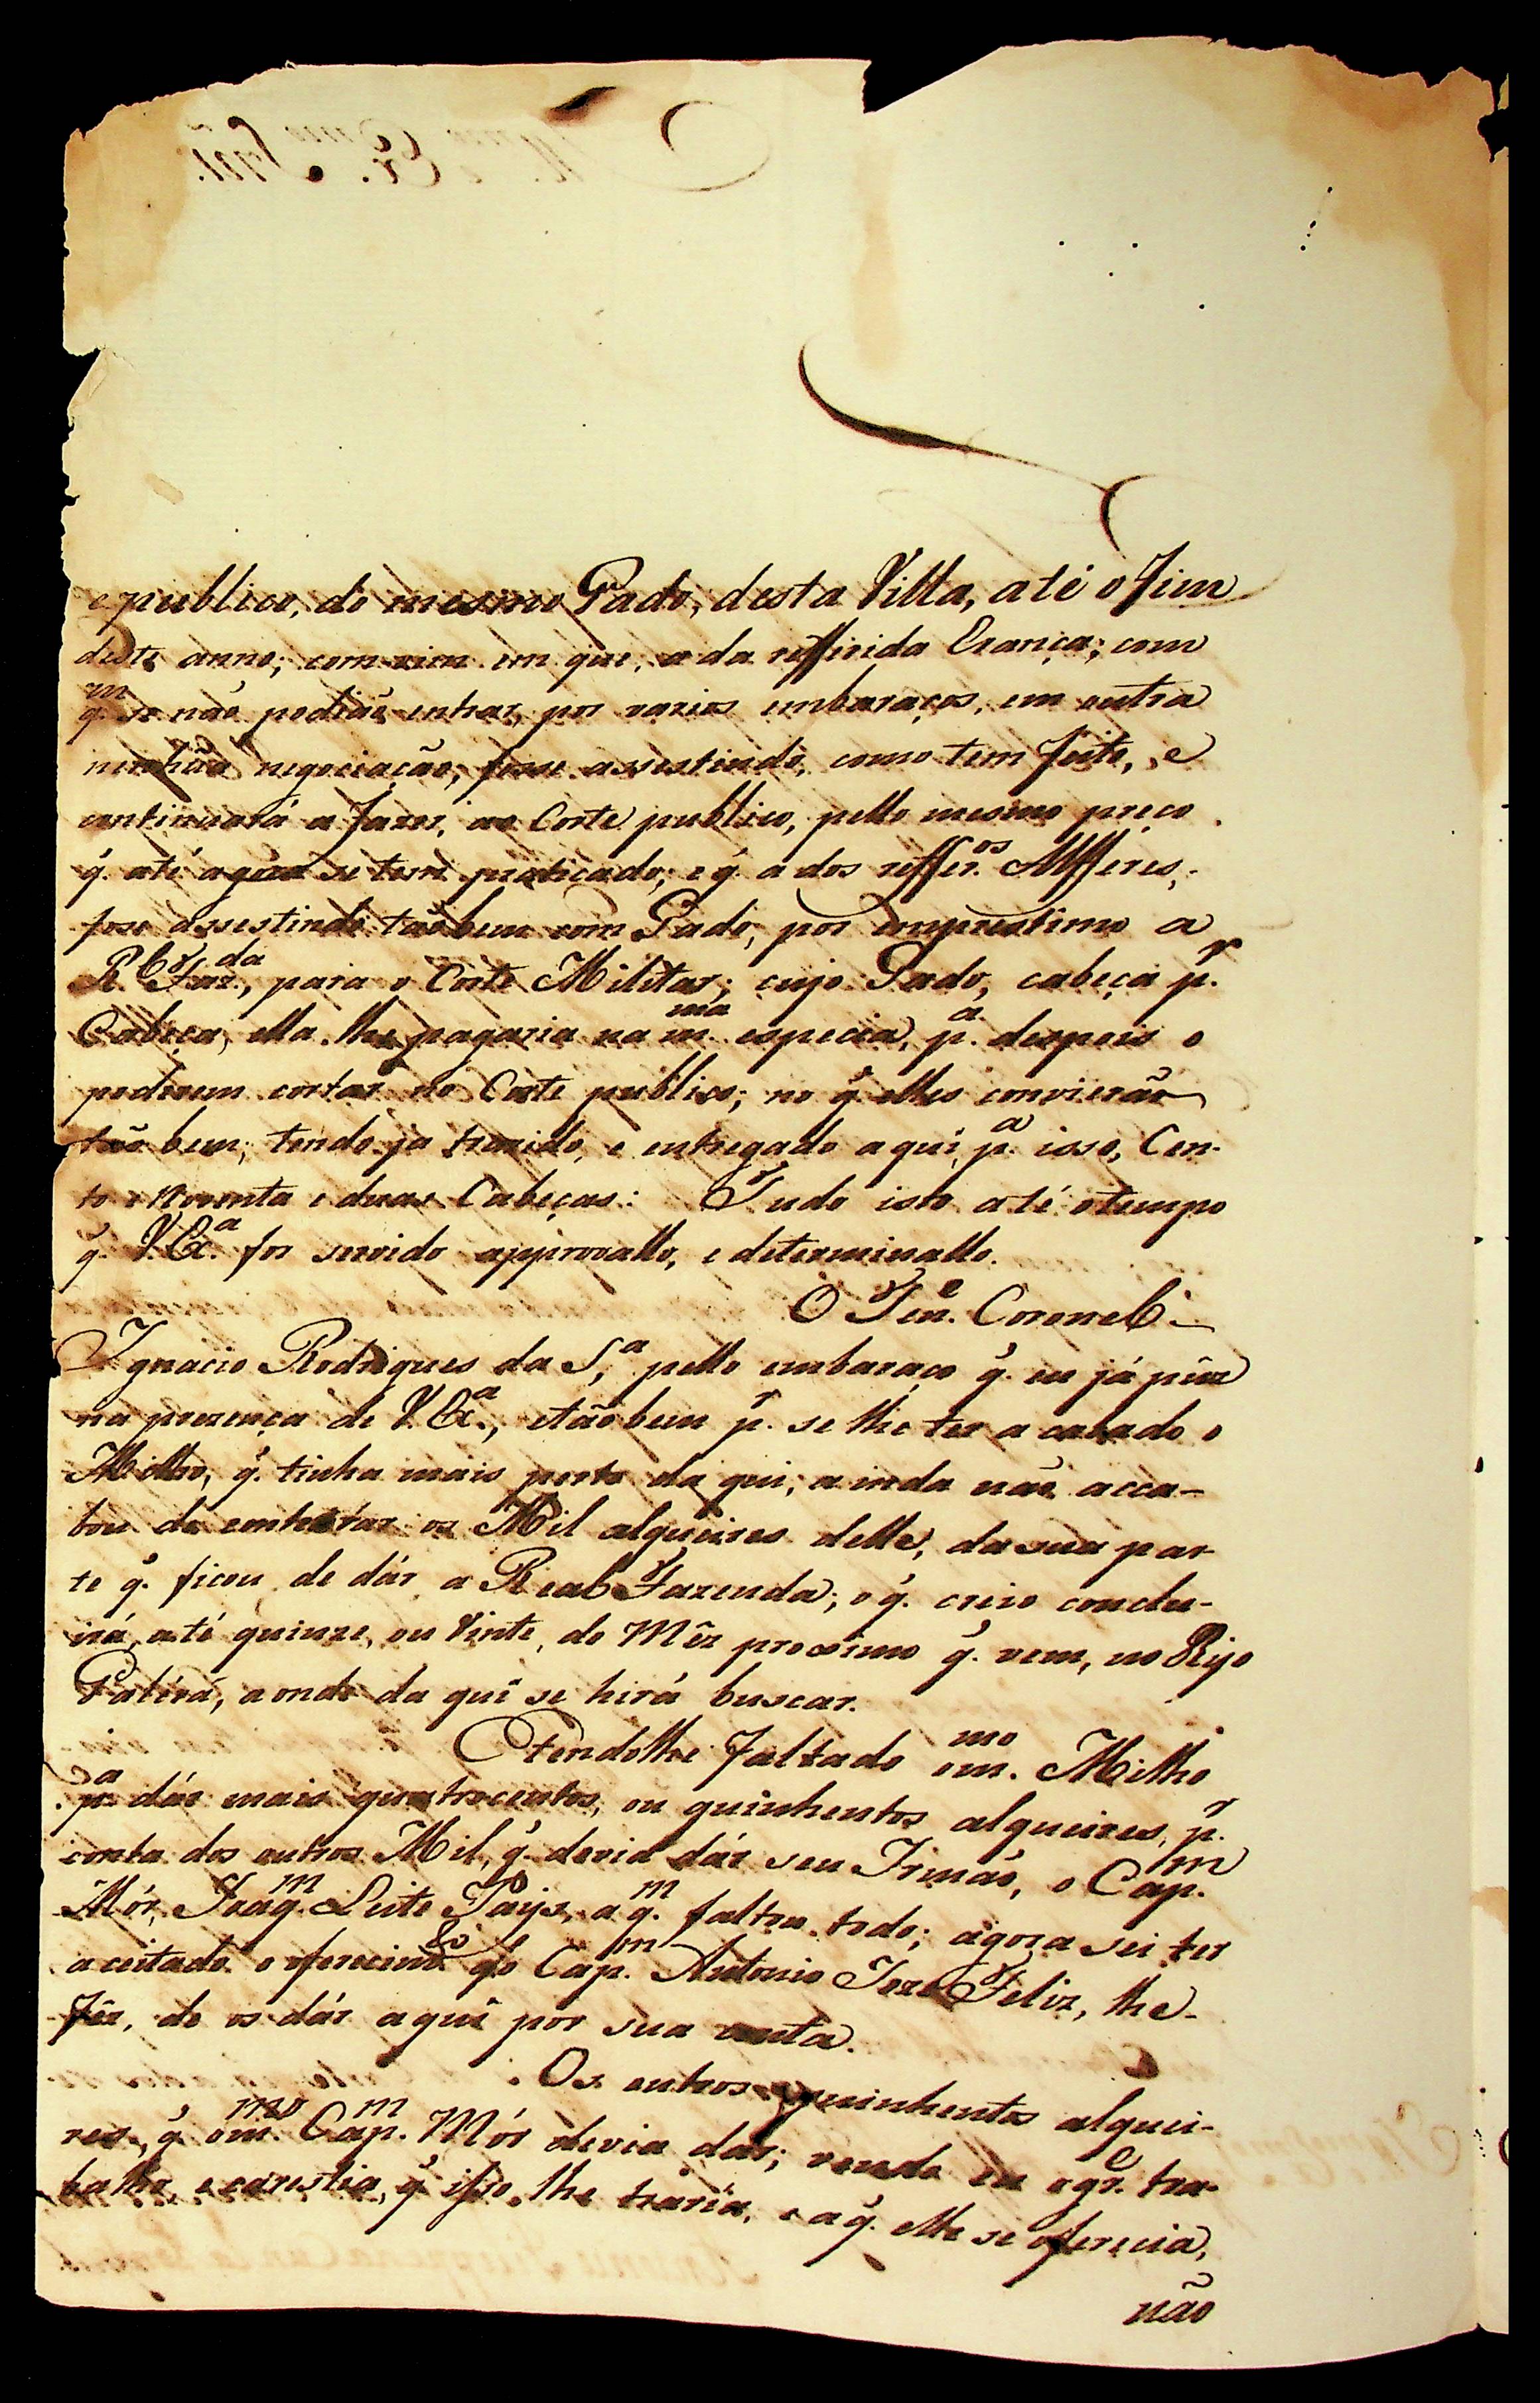 e publico, do mesmo Gado, desta Villa, até o fim
deste anno; com  em que, a da refferida Erança; com
q.^m se não podião entrar, por varios embaraços, em outra
nenhũa negociação; fosse assestindo, como tem feito, e
continuará a fazer, ao Corte publico, pello mesmo preço
q̃. até agora se tem praticado; e q̃. a dos reffer.^os Alfferes,
fose assestindo tãobem com Gado, por emprestimo a
R.^l Faz.^da, para o Corte Militar; cujo Gado, cabeça p.^r
Cabeça, ella lhe pagaria na m.^ma especia, p.^a despois o
poderem cortar no Corte publico; no q̃. elles convierão
tão bem; tendo ja trazido, e entregado aqui, p.^a isso, Cen-
to e Noventa e duas Cabeças: Tudo isto até o tempo
q̃. V. Ex.^a for servido approvallo, e determinallo.
O Ten.^e Coronel
Ignacio Rodrigues da S.^a, pello embaraço q̃. eu já pûz
na prezença de V. Ex.^a, e tão bem p.^r se lhe ter a cabado o
Milho, q̃. tinha mais perto da qui; a inda não acca-
bou de os Mil alqueires delle, da sua par-
te q̃. ficou de dár a Real Fazenda; o q̃. creio conclu-
irá, até quinze, ou Vinte, do Mêz proximo q̃. vem, no
 a onde da quî se hirá buscar.
Tendolhe faltado o m.^mo Milho
p.^a dár mais quatrocentos, ou quinhentos alqueires, p.^r
conta dos outros Mil, q̃. devia dár seu Irmão, o Cap.^m
Mór, Joaq.^m Leite Paijs, a q.^m faltou todo; agora sei ter
aceitado o oferecim.^to q̃. o Cap.^m Antonio Joze Feliz, lhe
fêz, de os dár aquî por sua conta.
Os outros quinhentos alquei-
res, q̃. o m.^mo Cap.^m Mór devia dar; vendo eu o gr.^e tra-
balho, e carestia, q̃. isso lhe traria, e a q̃. elle se oferecia,
não